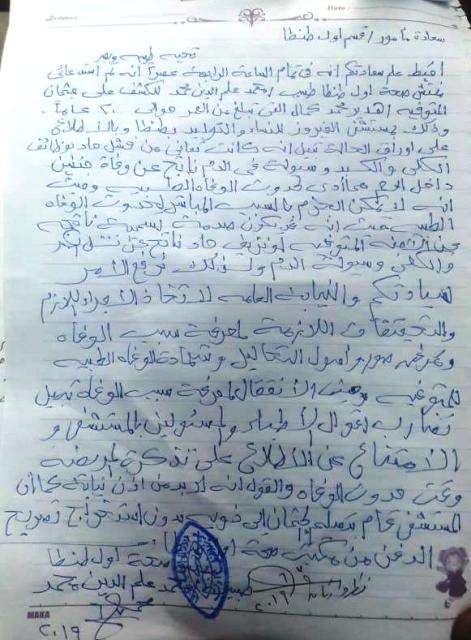 Date:
سعادة مأمور / قسم أول طنطا
تحية طيبه وبعد
أحيط علم سعادتكم أنه في تمام الساعة الرابعة عصراً أنه تم استدعائى
مفتش صحة أول طنطا طبيب / محمد علم الدين محمد للكشف على جثمان
المتوفيه / هدير محمد كمال التى تبلغ من العمر حوالى ٢٠ عاماً
وذلك بمستشفى الفيروز للنساء والتوليد بطنطا وبالاطلاع
على أوراق الحالة تبين أنه كانت تعانى من فشل حاد بوظائف
الكلى والكبد وسيولة فى الدم ناتج عن وفاة جنين
داخل الرحم مما أدى لحدوث الوفاة
انه لا يمكن الجزم بالسبب المباشر لحدوث الوفاة
حيث انه قد تكون صدمة تسممية ناتجه
عن المتوفيه أو نزيف حاد ناتج عن فشل الكبد
والكلى وسيولة الدم ولذلك نرفع الأمر
لسيادتكم والنيابة العامه لاتخاذ الاجراء اللازم
والتحقيقات اللازمة لمعرفة سبب الوفاه
صور وأصول التحاليل وشهادة الوفاه الطبيه
للمتوفيه لمعرفة سبب الوفاة
تضارب أقوال الأطباء والمسئولين بالمستشفى و
الامتناع عن الاطلاع على تذكرة المريضه
وقت حدوث الوفاه والقول انه لابد من اذن نيابة كما أن
المستشفى قام بتسليم الجثمان الى ذويه بدون استخراج تصريح
الدفن من مكتب صحة أول طنطا
صحة أول طنطا
محمد علم الدين محمد
٢٠١٩
MAKA
٢٠١٩